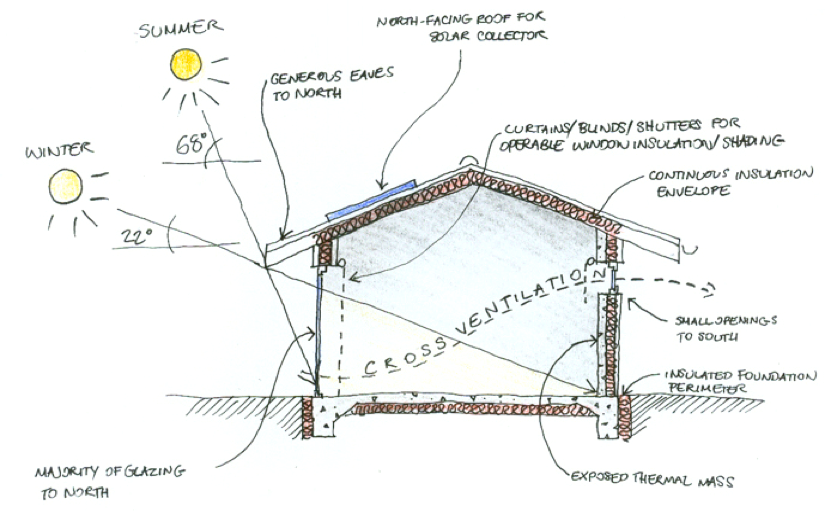 SUMMER
NORTH-FACING ROOF FOR
SOLAR COLLECTOR
GENEROUS EAVES
TO NORTH
68°
WINTER
CURTAINS/BLINDS/SHUTTERS FOR
OPERABLE WINDOW INSULATION/SHADING
CONTINUOUS INSULATION
ENVELOPE
22°
CROSS VENTILATION
SMALL OPENINGS
TO SOUTH
INSULATED FOUNDATION
PERIMETER
MAJORITY OF GLAZING
TO NORTH
EXPOSED THERMAL MASS